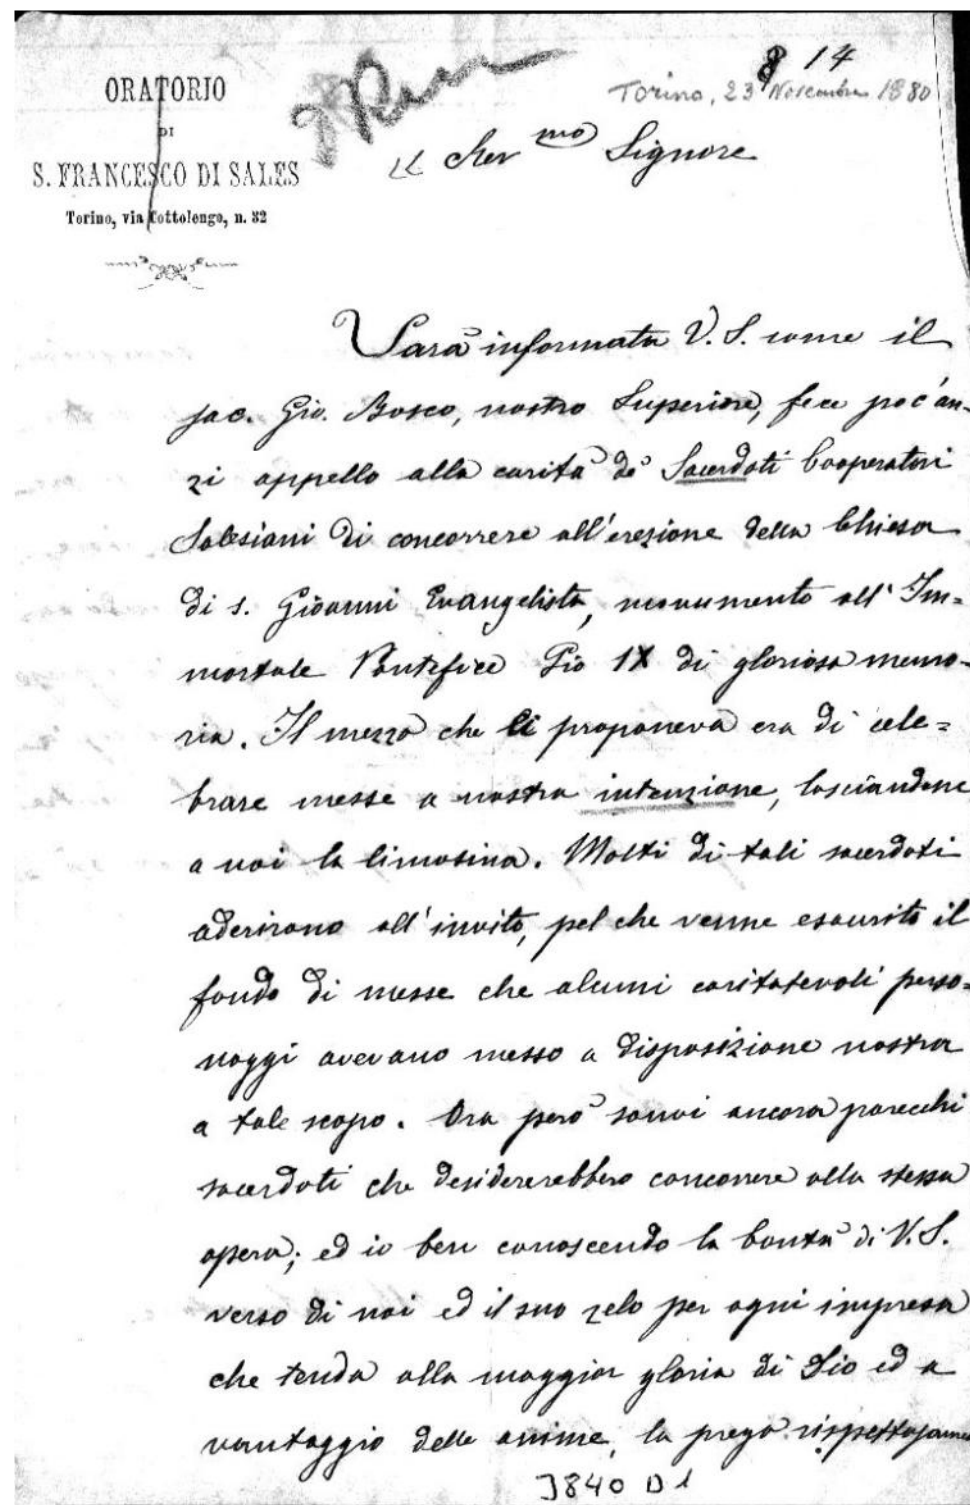 ORATORIO
DI
S. FRANCESCO DI SALES
Torino, via Cottolengo, n. 32
8 14
Torino, 23 Novembre 1880
Rev mo Signore
Sarà informata V. S. come il
sac. Gio. Bosco, nostro Superiore, fece poc'an-
zi appello alla carità de' Sacerdoti Cooperatori
Salesiani di concorrere all'erezione della Chiesa
di s. Giovanni Evangelista, monumento all' Im=
mortale Pontefice Pio IX di gloriosa memo-
ria. Il mezzo che ei proponeva era di cele=
brare messe a nostra intenzione, lasciandone
a noi la limosina. Molti di tali sacerdoti
aderirono all'invito, pel che venne esaurito il
fondo di messe che alcuni caritatevoli perso=
naggi avevano messo a disposizione nostra
a tale scopo. Ora però sonvi ancora parecchi
sacerdoti che desidererebbero concorrere alla stessa
opera; ed io ben conoscendo la bontà di V. S.
verso di noi ed il suo zelo per ogni impresa
che tenda alla maggior gloria di Dio ed a
vantaggio delle anime, la prego rispettosame
3840 D 1